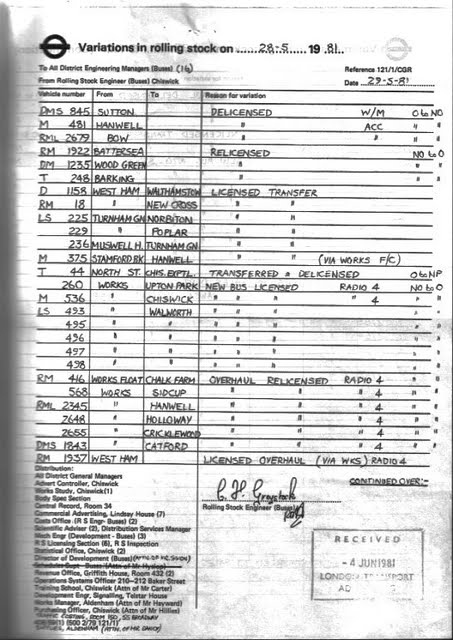 Variations in rolling stock on 28-5 19 81.
To All District Engineering Managers (Buses) (16)
Reference 121/1/CGR
From Rolling Stock Engineer (Buses) Chiswick
Date 29-5-81
Vehicle number From To Reason for variation
DMS 845 SUTTON DELICENSED W/M O to NO
M 481 HANWELL " ACC " "
RML 2679 BOW " " " "
RM 1922 BATTERSEA RELICENSED NO to O
DM 1235 WOOD GREEN " " "
T 248 BARKING " " "
D 1158 WEST HAM WALTHAMSTOW LICENSED TRANSFER
RM 18 " NEW CROSS " "
LS 225 TURNHAM GN NORBITON " "
229 " POPLAR " "
236 MUSWELL H. TURNHAM GN " "
M 375 STAMFORD BK HANWELL " " (VIA WORKS F/C)
T 44 NORTH ST. CHIS. EXPTL. TRANSFERRED & DELICENSED O to NP
260 WORKS UPTON PARK NEW BUS LICENSED RADIO 4 NO to O
M 536 " CHISWICK " " " " 4 " "
LS 493 " WALWORTH " " " " "
495 " " " " " " "
496 " " " " " " "
497 " " " " " " "
498 " " " " " " "
RM 416 WORKS FLOAT CHALK FARM OVERHAUL RELICENSED RADIO 4 " "
568 WORKS SIDCUP " " " 4 " "
RML 2345 " HANWELL " " " 4 " "
2648 " HOLLOWAY " " " 4 " "
2655 " CRICKLEWOOD " " " 4 " "
DMS 1843 " CATFORD " " " 4 " "
RM 1937 WEST HAM LICENSED OVERHAUL (VIA WKS) RADIO 4
Distribution:
All District General Managers
Advert Controller, Chiswick
Works Study, Chiswick (1)
Body Spec Section
Central Record, Room 34
Commercial Advertising, Lindsay House (7)
Costs Office. (R S Engr- Buses) (2)
Scientific Adviser (2), Distribution Services Manager
Mech Engr (Development - Buses) (3)
RS Licensing Section (6), R S Inspection
Statistical Office, Chiswick (2)
Director of Development (Buses)
Schedules Supt - Buses (Attn of Mr Hyslop)
Revenue Office, Griffith House, Room 432 (2)
Operations Systems Officer 210-212 Baker Street
Training School, Chiswick (Attn of Mr Carter)
Development Engr, Signalling, Telstar House
Works Manager, Aldenham (Attn of Mr Hayward)
Purchase Office, Chiswick (Attn of Mr Hillier)
TRAFFIC COSTING, ROOM 150, 55 BROADWAY
ALDENHAM (ATTN. OF MR DANCY)
C H Greystock
Rolling Stock Engineer (Buses)
CONTINUED OVER:-
RECEIVED
- 4 JUN 1981
LONDON TRANSPORT